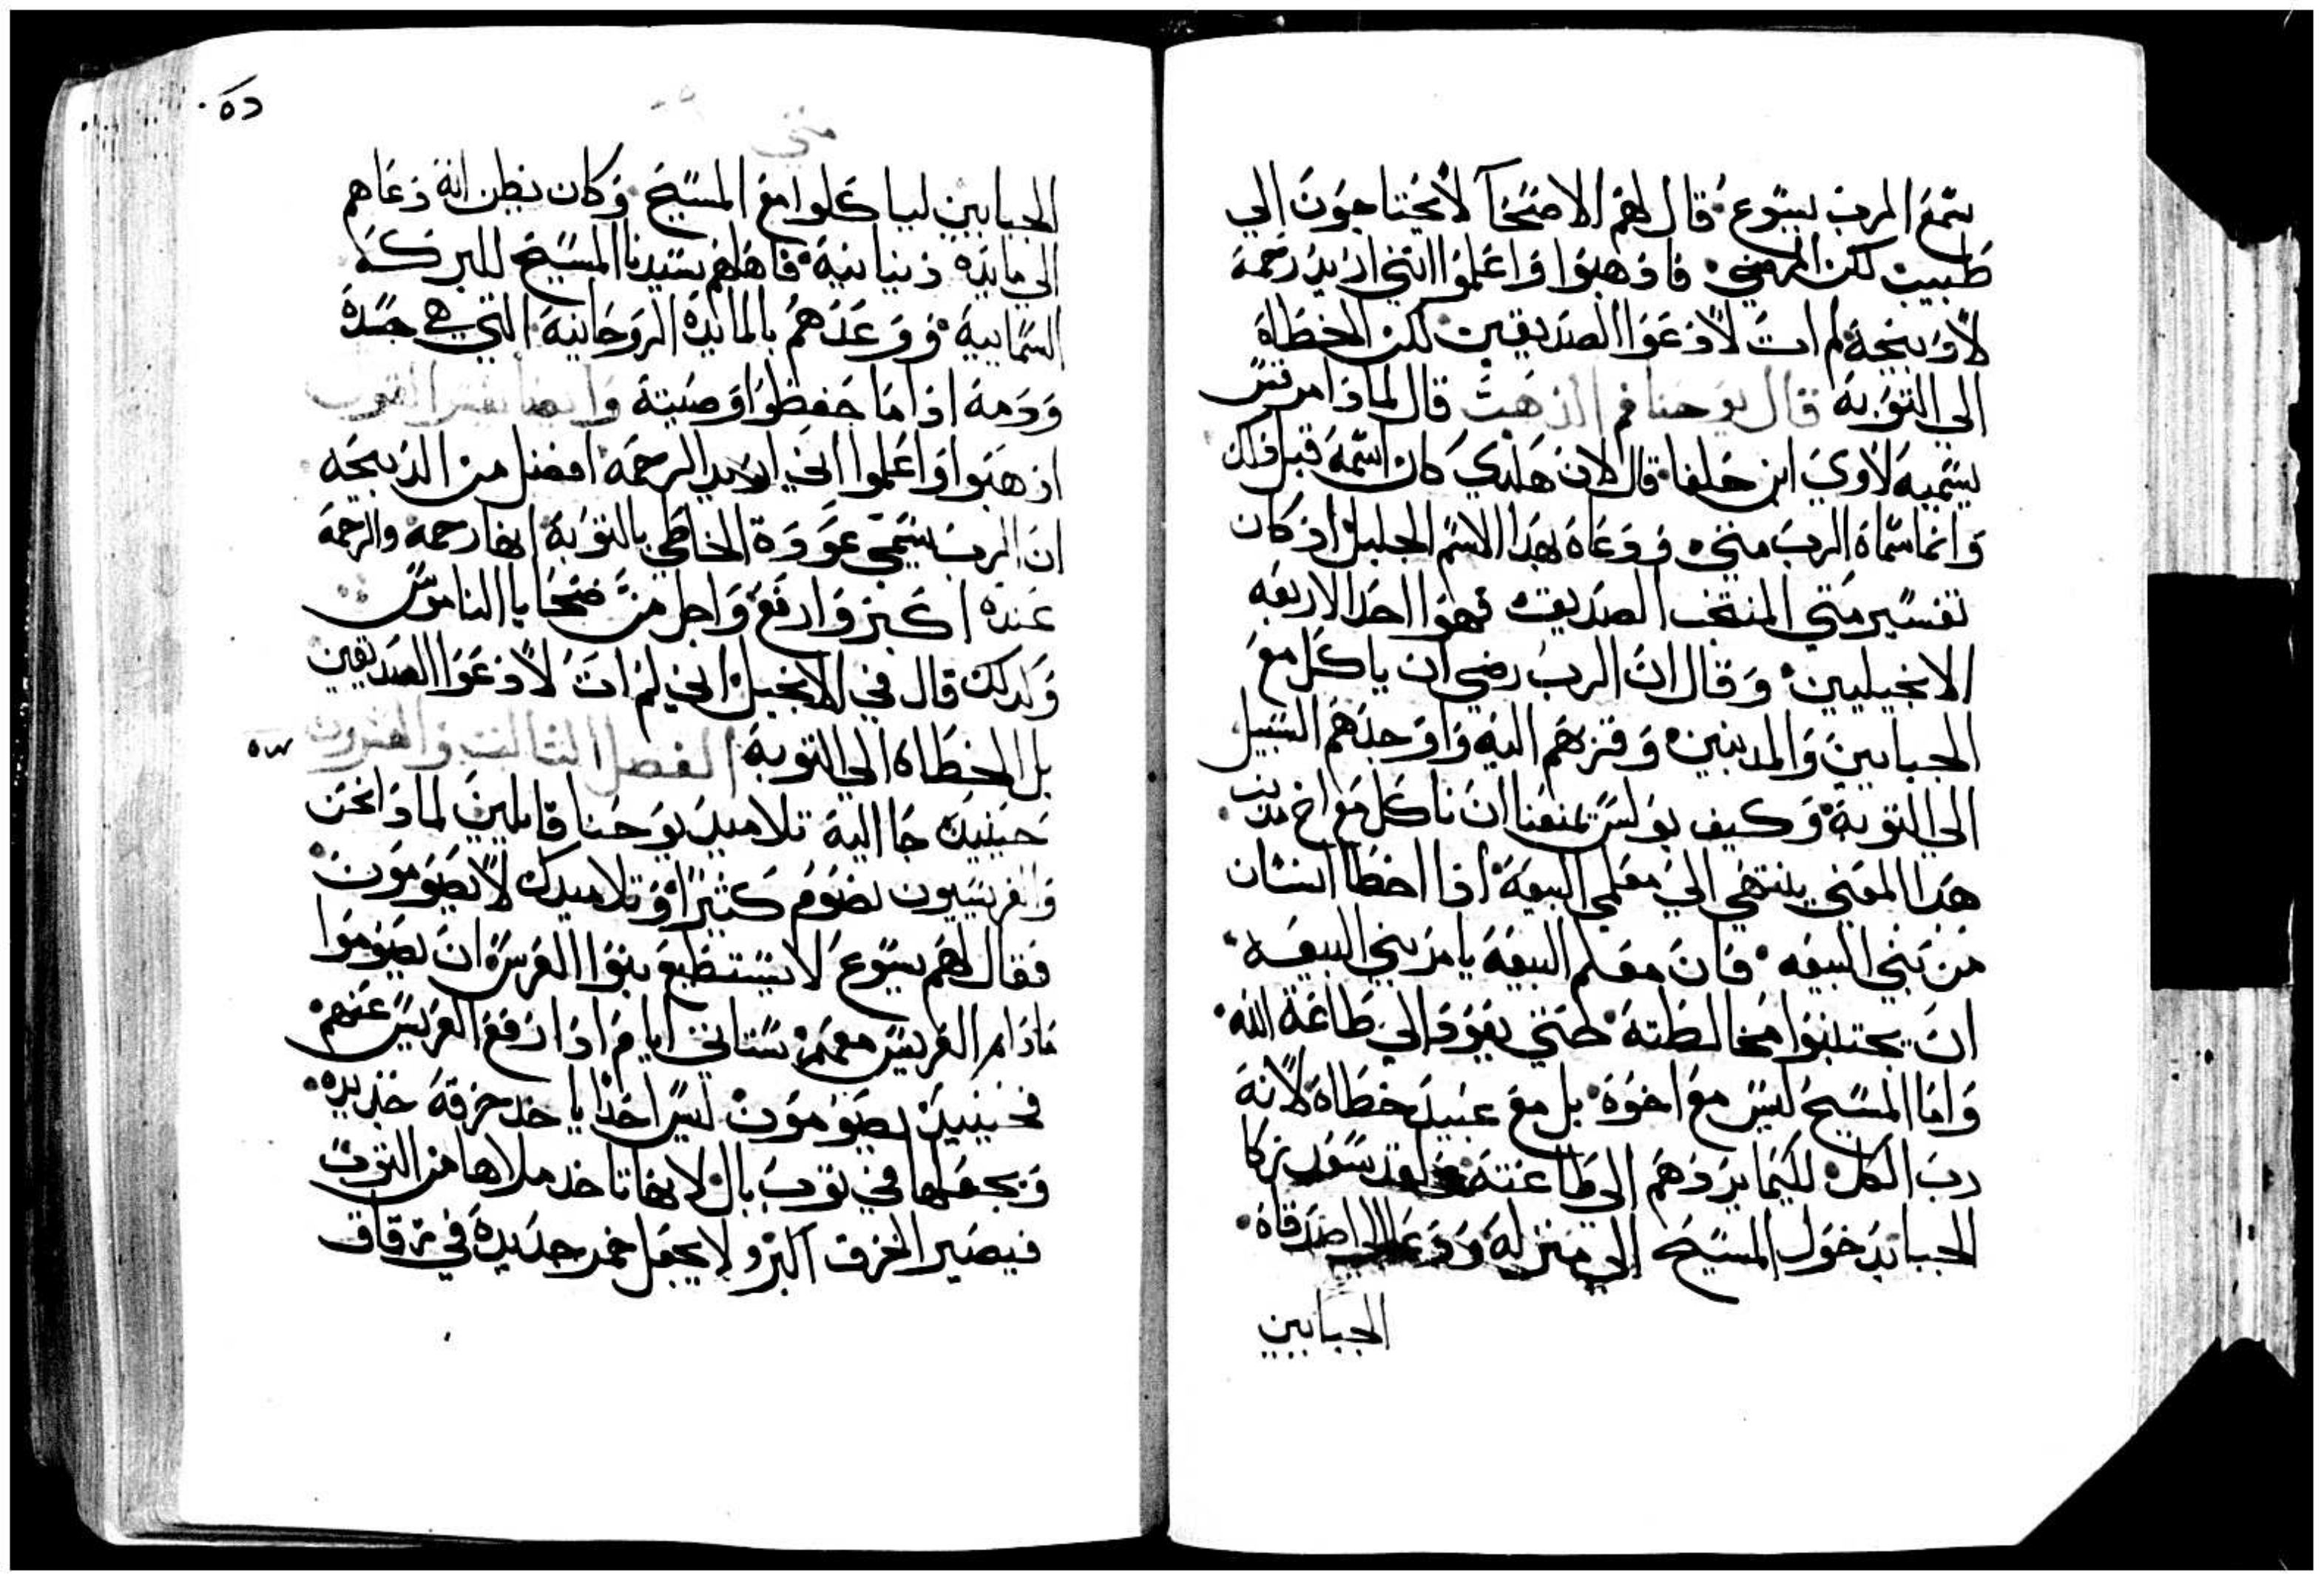 سمع الرب يسوع قال لهم الاصحا لا يحتاجون الي
طبيب لكن المرضي فاذهبوا واعلموا انني اريد رحمة
لا ذبيحة لم ات لادعوا الصديقين لكن الخطاة
الي التوبة قال يوحنا فم الذهب قال لماذا مرقس
يسميه لاوي ابن حلفا قال لان هكذي كان اسمه قبل ذلك
وانما سماه الرب متي ودعاه بهذا الاسم الجليل اذ كان
تفسير متي المنتخب الصديق فهوا احد الاربعه
الانجيليين وقال ان الرب رضي ان ياكل مع
الجبايين والمدنبين وقربهم اليه واوجدهم السبيل
الي التوبة وكيف بولس يمنعنا ان ناكل مع اخ مدنب
هدا المعني ينتهي الي معلمي البيعة اذا اخطا انسان
من بني البيعه فان معلم البيعة يامر بني البيعه
ان يجتنبوا مخالطته حتي يعود الي طاعة الله
واما المسيح ليس مع اخوة بل مع عبيد خطاه لانه
رب الكل لكيما يردهم الي طاعته
الجبا بدخول المسيح الي منزله ودعا اصدقاه
الجبايين
متي
الجبايين لياكلوا مع المسيح وكان يظن انه دعاهم
الي مايدة دنيانية فاهلهم سيدنا المسيح للبركة
السمايية ووعدهم بالمايدة الروحانية التي هي جسدة
ودمة اذا ما حفظوا وصيته وايضا يفسر القول
اذهبوا واعلموا اني اريد الرحمة افضل من الدبيحه
ان الرب يسمي عودة الخاطي بالتوبة انها رحمة والرحمة
عنده اكبر وارفع واجل من ضحايا الناموس
وكدلك قال في الانجيل اني لم ات لادعوا الصديقين
بل الخطاه الي التوبة الفصل الثالث والعشرون
حينيد جا اليه تلاميد يوحنا قايلين لماذا نحن
والفريسيون نصوم كثيرا وتلاميدك لا يصومون
فقال لهم يسوع لا يستطيع بنوا العرس ان يصوموا
مادام العريس معهم ستاتي ايام اذا رفع العريس عنهم
فحينيد يصومون ليس احد ياخد خرقة جديده
ويجعلها في ثوب بال لانها تاخد ملاها من الثوب
فيصير الخرق اكبر ولا يجعل خمر جديدة في زقاق